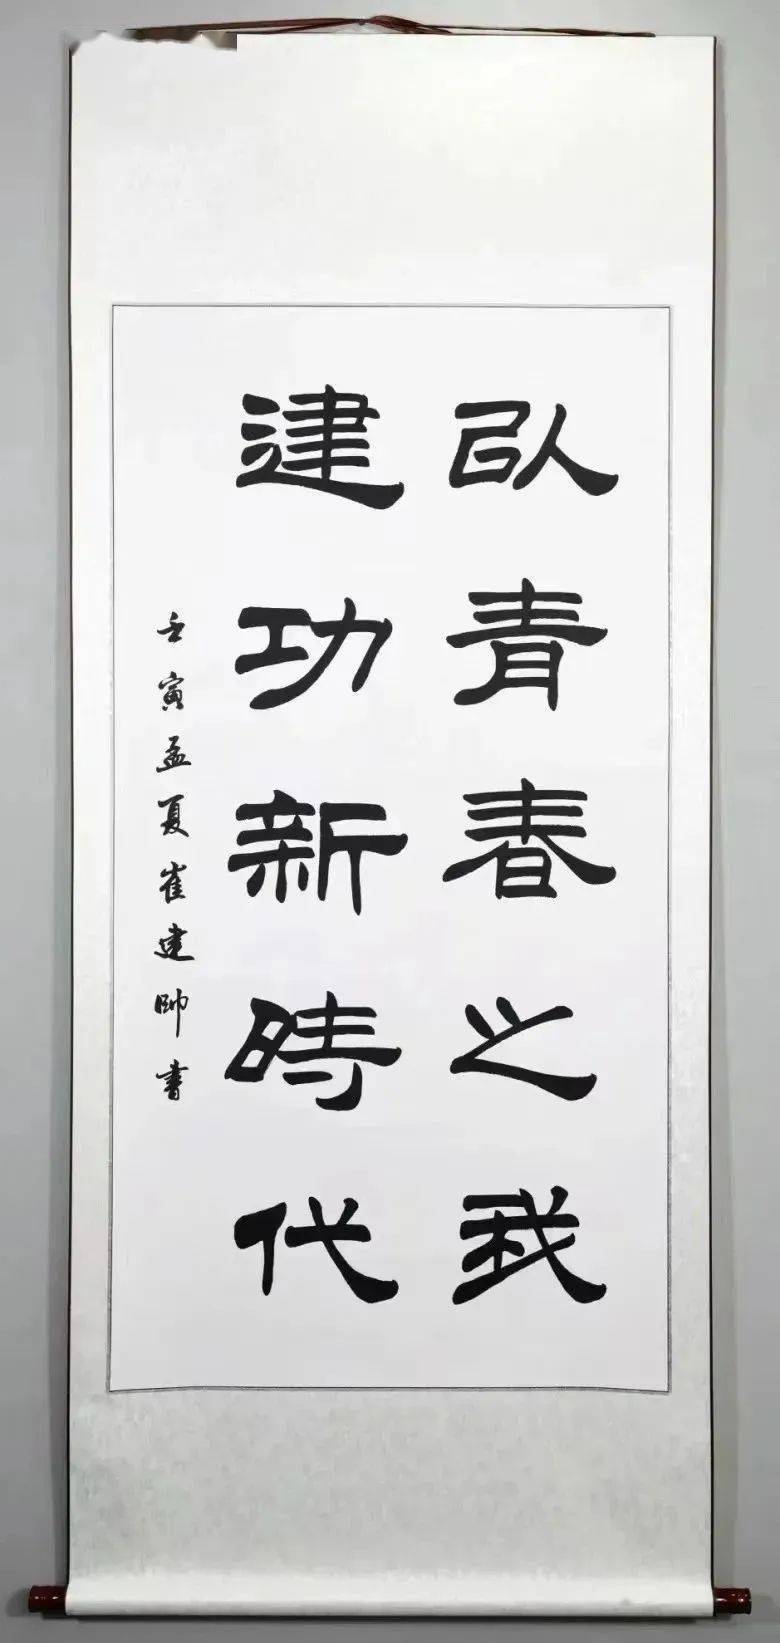 以青春之我
建功新時代
壬寅孟夏崔建帥書